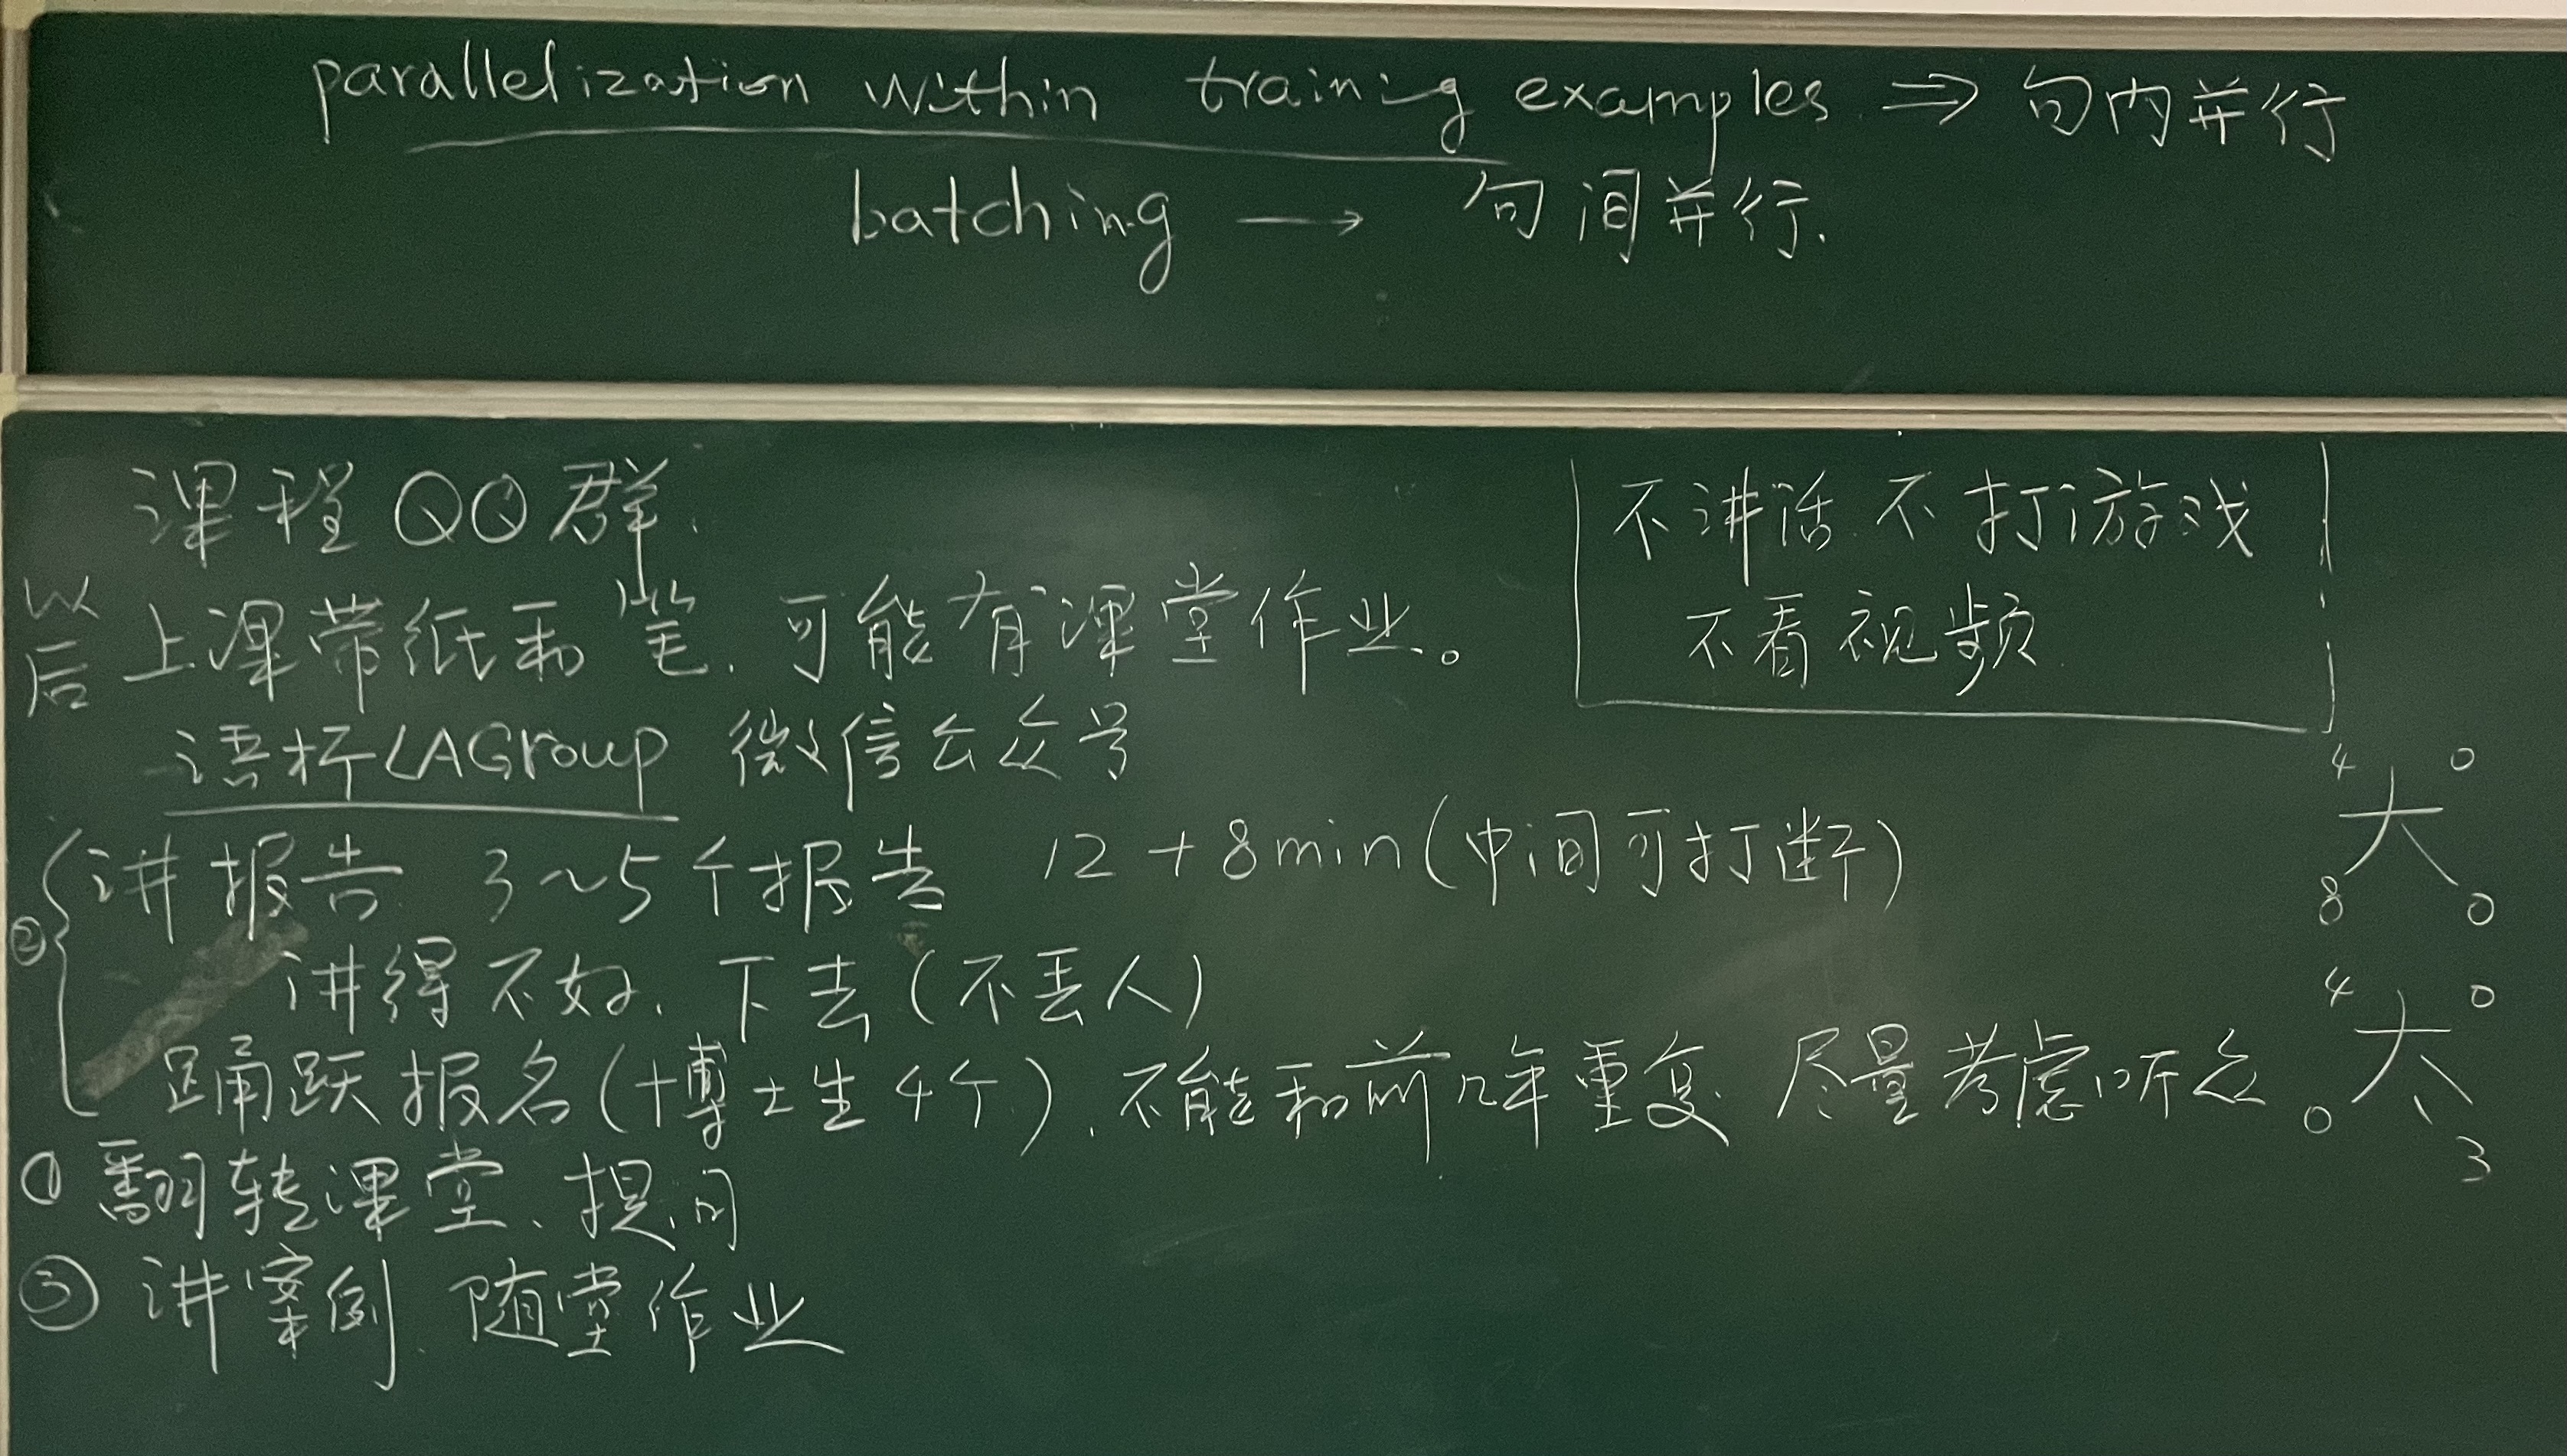 parallelization within training examples ⇒ 句内并行
batching → 句间并行.
课程QQ群.
不讲话 不打游戏
不看视频
以后上课带纸和笔, 可能有课堂作业。
语析LAGroup 微信公众号
② 讲报告 3~5个报告 12+8min(中间可打断)
讲得不好, 下去(不丢人)
踊跃报名(+博士生4个), 不能和前几年重复, 尽量考虑听众
① 翻转课堂、提问
③ 讲案例, 随堂作业
4 0
大
8 0
4 0
太
0 3